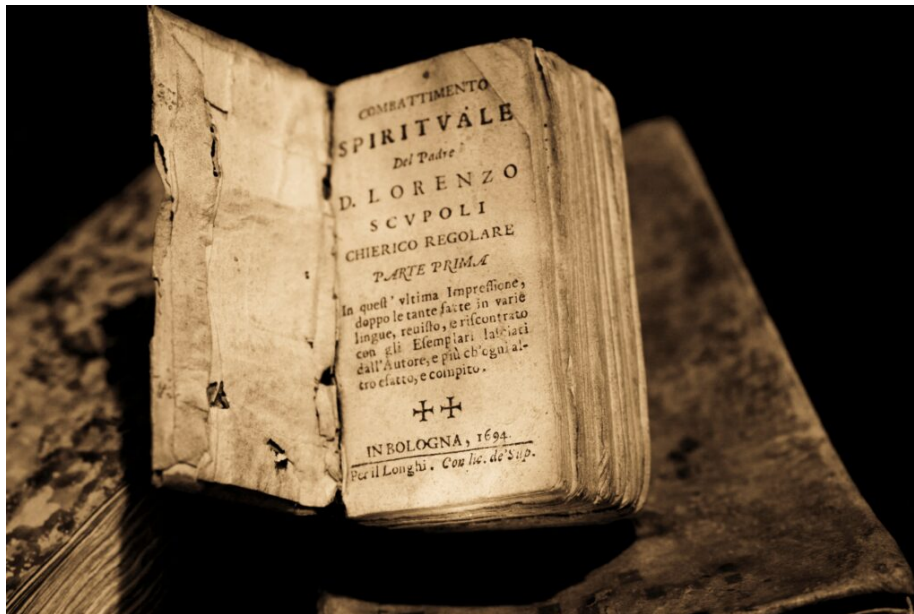 COMBATTIMENTO
SPIRITVALE
Del Padre
D. LORENZO
SCVPOLI
CHIERICO REGOLARE
PARTE PRIMA
In queſt' vltima Impreſſione,
doppo le tante fatte in varie
lingue, reuiſto, e riſcontrato
con gli Eſemplari laſciati
dall'Autore, e più ch'ogni al-
tro eſatto, e compito.
IN BOLOGNA, 1694.
Per il Longhi. Con lic. de' Sup.